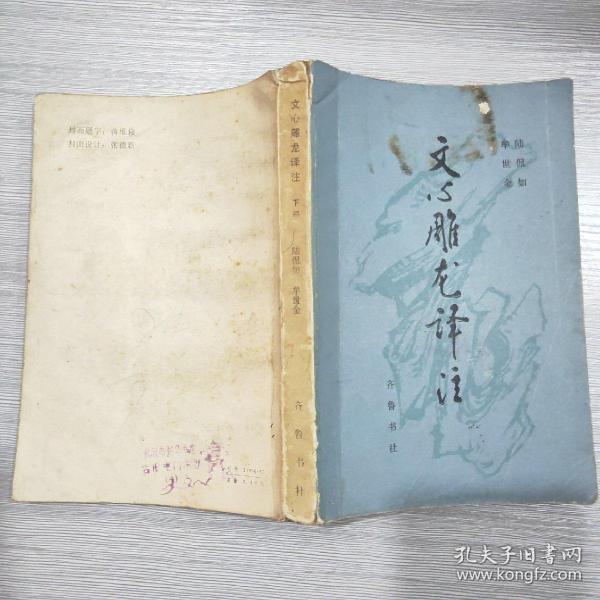 封面题字：蒋维崧
封面设计：张德新
文心雕龙译注
下册
陆侃如 牟世金
齐鲁书社
陆侃如
牟世金
文心雕龙译注
齐鲁书社
孔夫子旧书网
www.kongfz.com